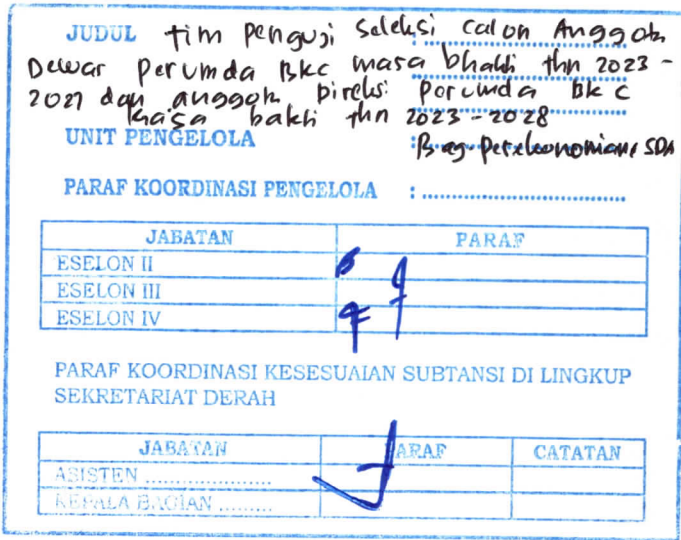 JUDUL tim penguji seleksi calon Anggota
Dewan perumda BKC masa bhakti thn 2023 -
2027 dan anggota Direksi perumda BKC
masa bakti thn 2023 - 2028
UNIT PENGELOLA : Bag. Perekonomian & SDA
PARAF KOORDINASI PENGELOLA :
JABATAN PARAF
ESELON II
ESELON III
ESELON IV
PARAF KOORDINASI KESESUAIAN SUBTANSI DI LINGKUP
SEKRETARIAT DERAH
JABATAN PARAF CATATAN
ASISTEN .....................
KEPALA BAGIAN .........